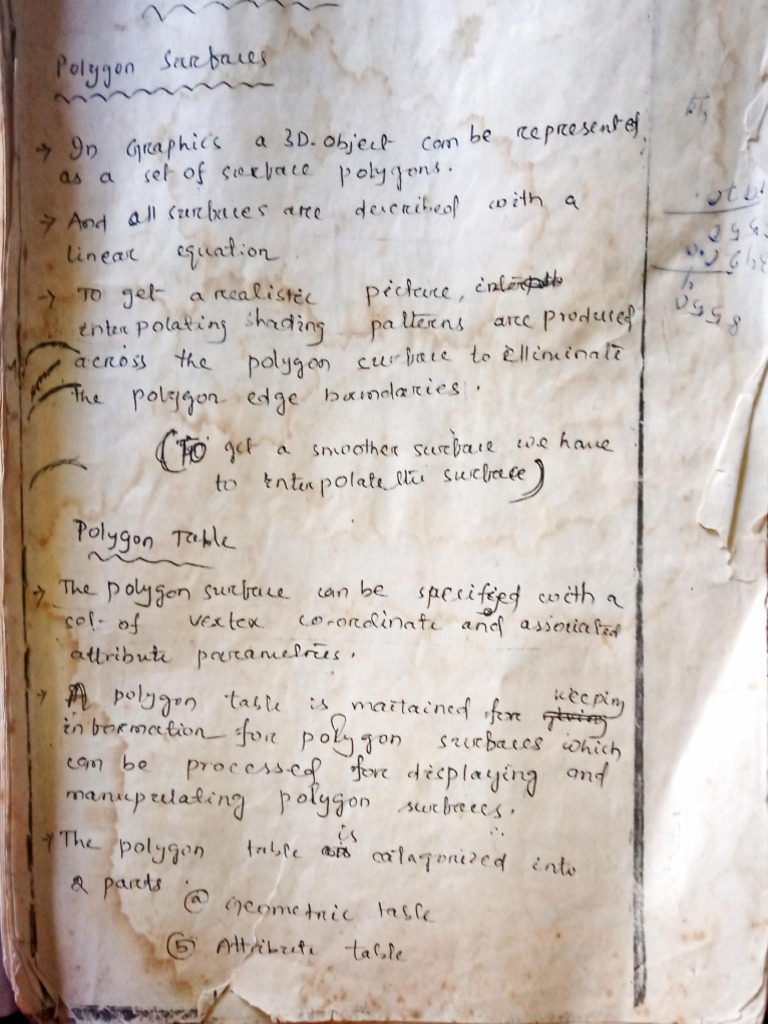 Polygon Surfaces
→ In Graphics a 3D-object can be represented
as a set of surface polygons.
→ And all surfaces are described with a
linear equation
→ To get a realistic picture,
interpolating shading patterns are produced
across the polygon surface to elliminate
the polygon edge boundaries.
(To get a smoother surface we have
to interpolate the surface)
Polygon Table
→ The polygon surface can be specified with a
set of vextex co-ordinate and associated
attribute parametries.
→ A polygon table is maitained for keeping
information for polygon surfaces which
can be processed for displaying and
manupulating polygon surfaces.
→ The polygon table is catagorized into
2 parts
(a) Geometric table
(b) Attribute table